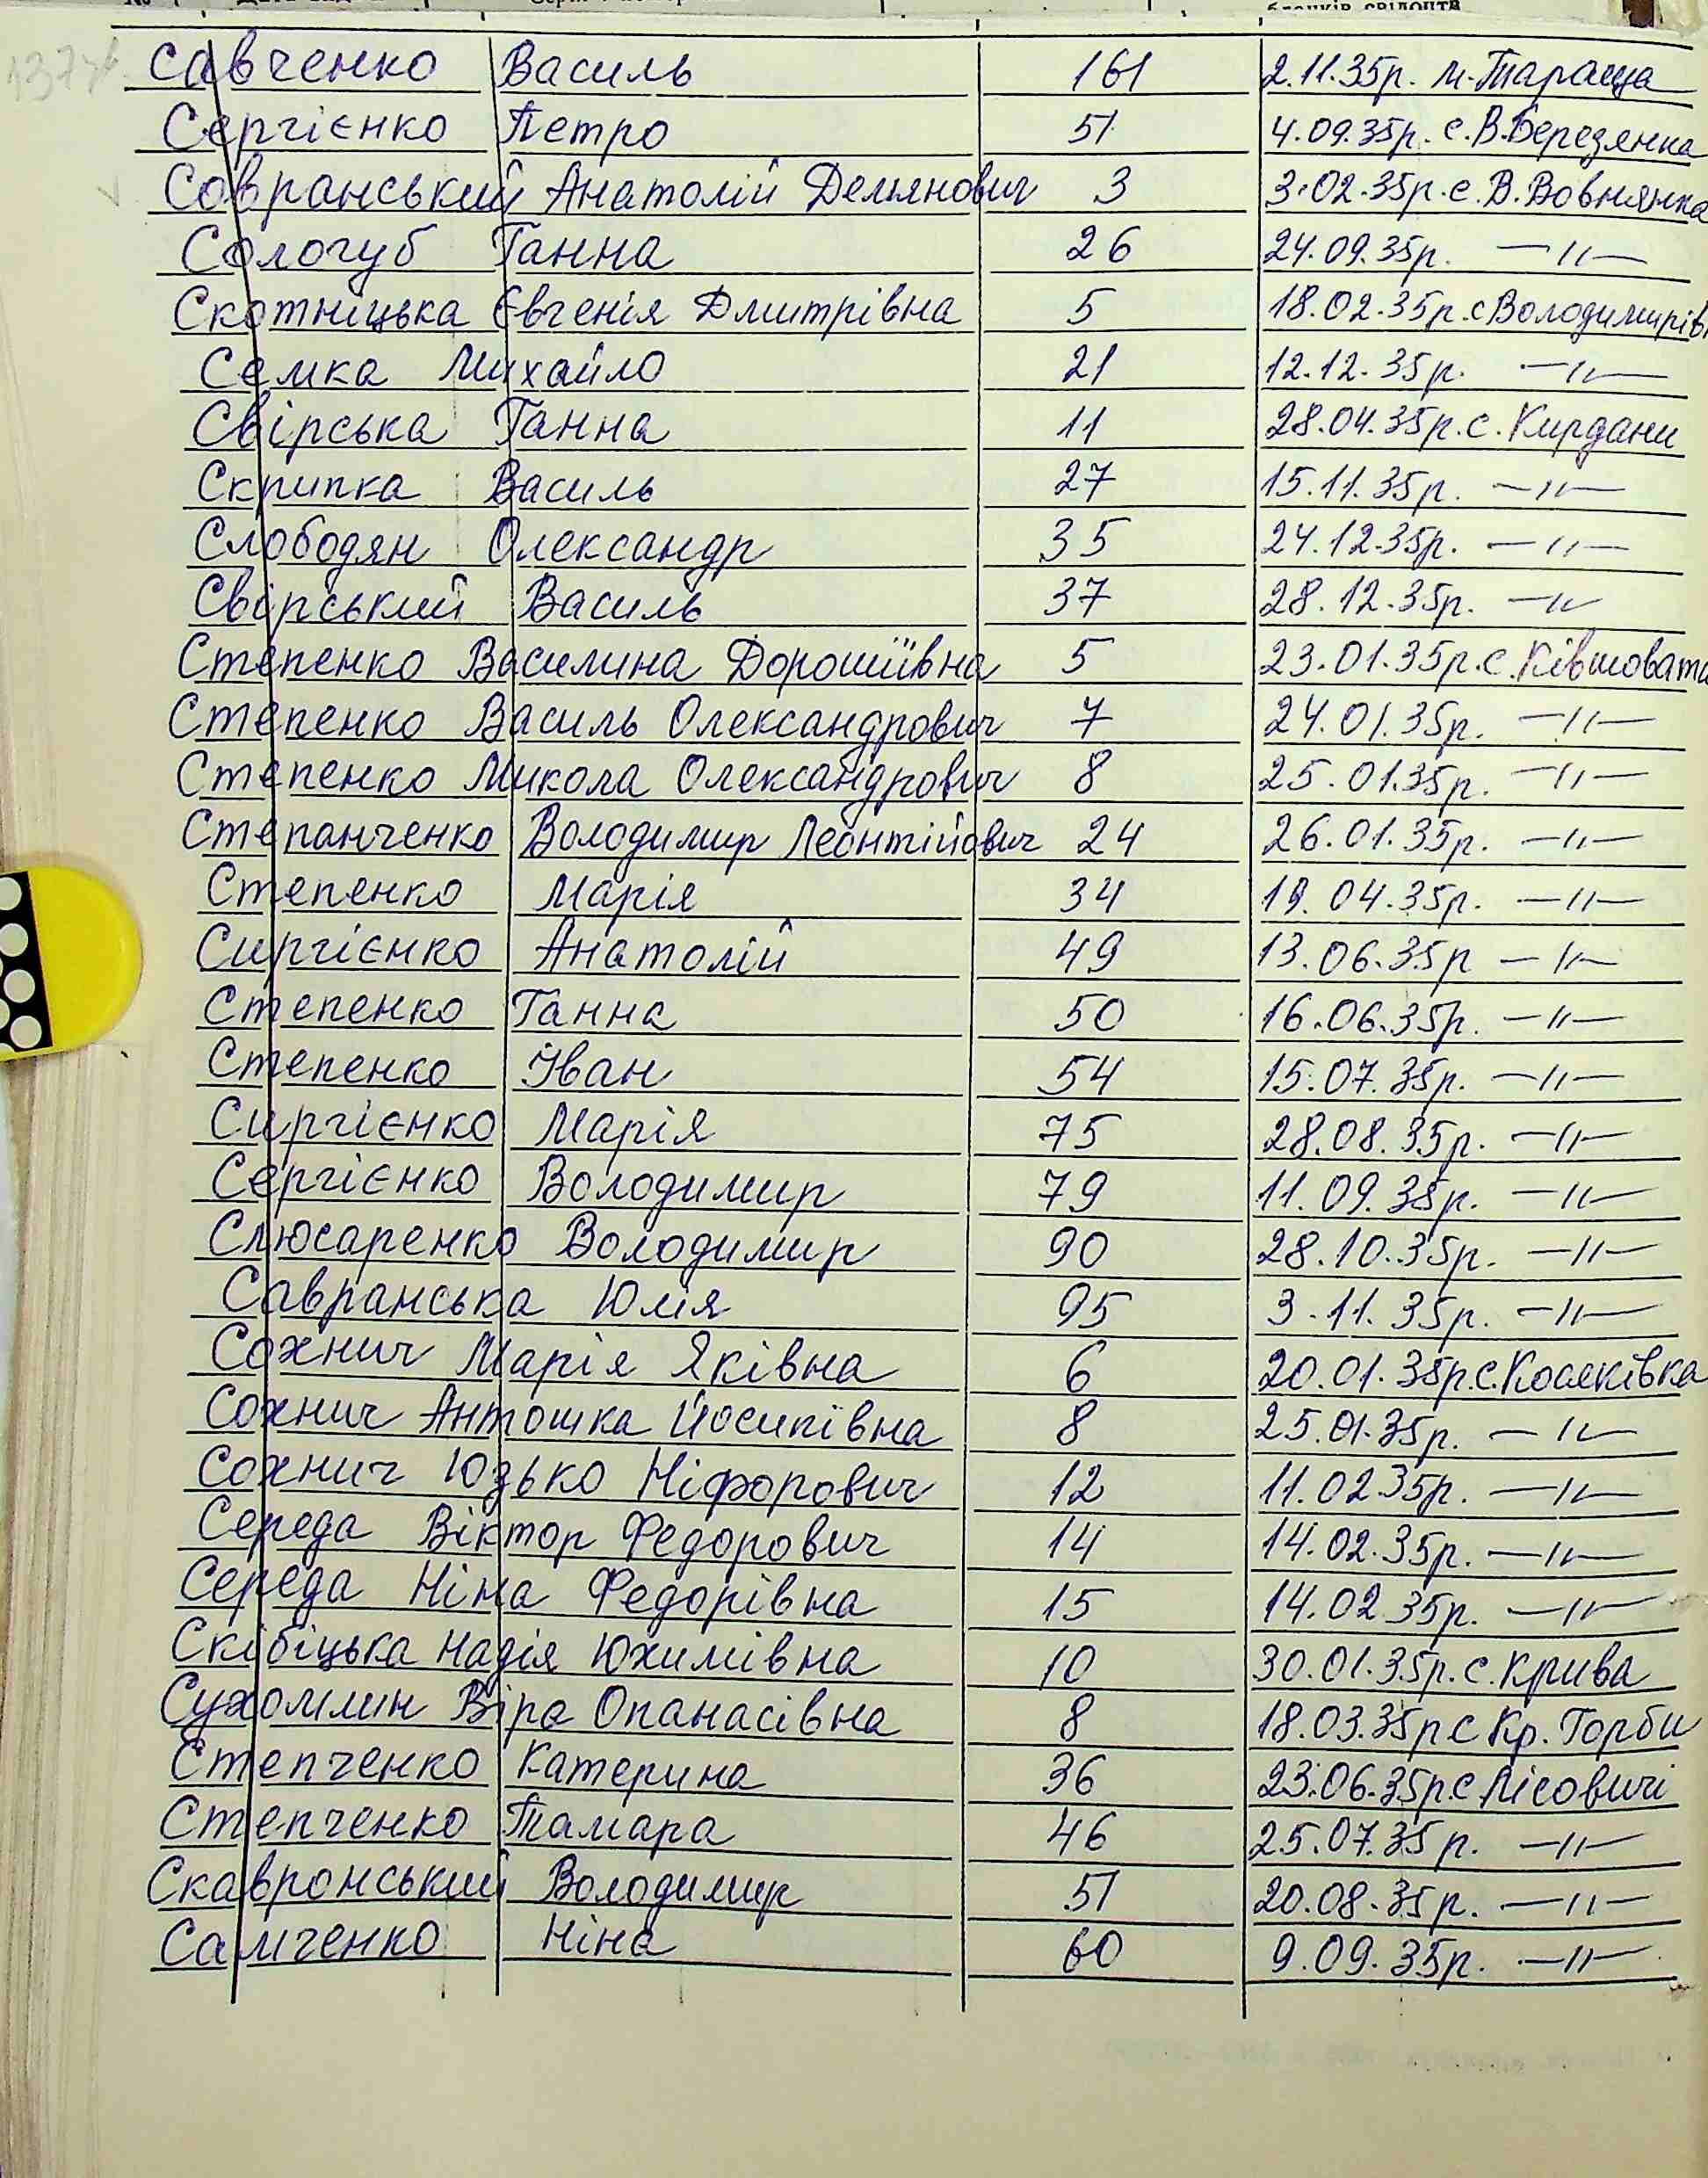 Савченко Василь 161 2.11.35р. м. Тараща
Сергієнко Петро 51 4.09.35р. с. В. Березянка
Савранський Анатолій Демянович 3 3.02.35р. с. В. Вовнянка
Сологуб Ганна 26 24.09.35р. —〃—
Скотніцька Євгенія Дмитрівна 5 18.02.35р. с Володимирівк
Семка Михайло 21 12.12.35р. —〃—
Свірська Ганна 11 28.04.35р. с. Кирдани
Скрипка Василь 27 15.11.35р. —〃—
Слободян Олександр 35 24.12.35р. —〃—
Свірський Василь 37 28.12.35р. —〃—
Степенко Василина Дорошіївна 5 23.01.35р. с. Ківшовата
Степенко Василь Олександрович 7 24.01.35р. —〃—
Степенко Микола Олександрович 8 25.01.35р. —〃—
Степанченко Володимир Леонтійович 24 26.01.35р. —〃—
Степенко Марія 34 19.04.35р. —〃—
Сиргієнко Анатолій 49 13.06.35р —〃—
Степенко Ганна 50 16.06.35р. —〃—
Степенко Іван 54 15.07.35р. —〃—
Сиргієнко Марія 75 28.08.35р. —〃—
Сергієнко Володимир 79 11.09.35р. —〃—
Слюсаренко Володимир 90 28.10.35р. —〃—
Савранська Юлія 95 3.11.35р. —〃—
Сохнич Марія Яківна 6 20.01.35р. с. Косяківка
Сохнич Антошка Йосипівна 8 25.01.35р. —〃—
Сохнич Юзько Ніфорович 12 11.02.35р. —〃—
Середа Віктор Федорович 14 14.02.35р. —〃—
Середа Ніна Федорівна 15 14.02.35р. —〃—
Скібіцька Надія Юхимівна 10 30.01.35р. с. Крива
Сухомлин Віра Опанасівна 8 18.03.35р с Кр. Горби
Степченко Катерина 36 23.06.35р. с Лісовичі
Степченко Тамара 46 25.07.35р. —〃—
Скавронський Володимир 51 20.08.35р. —〃—
Самченко Ніна 60 9.09.35р. —〃—